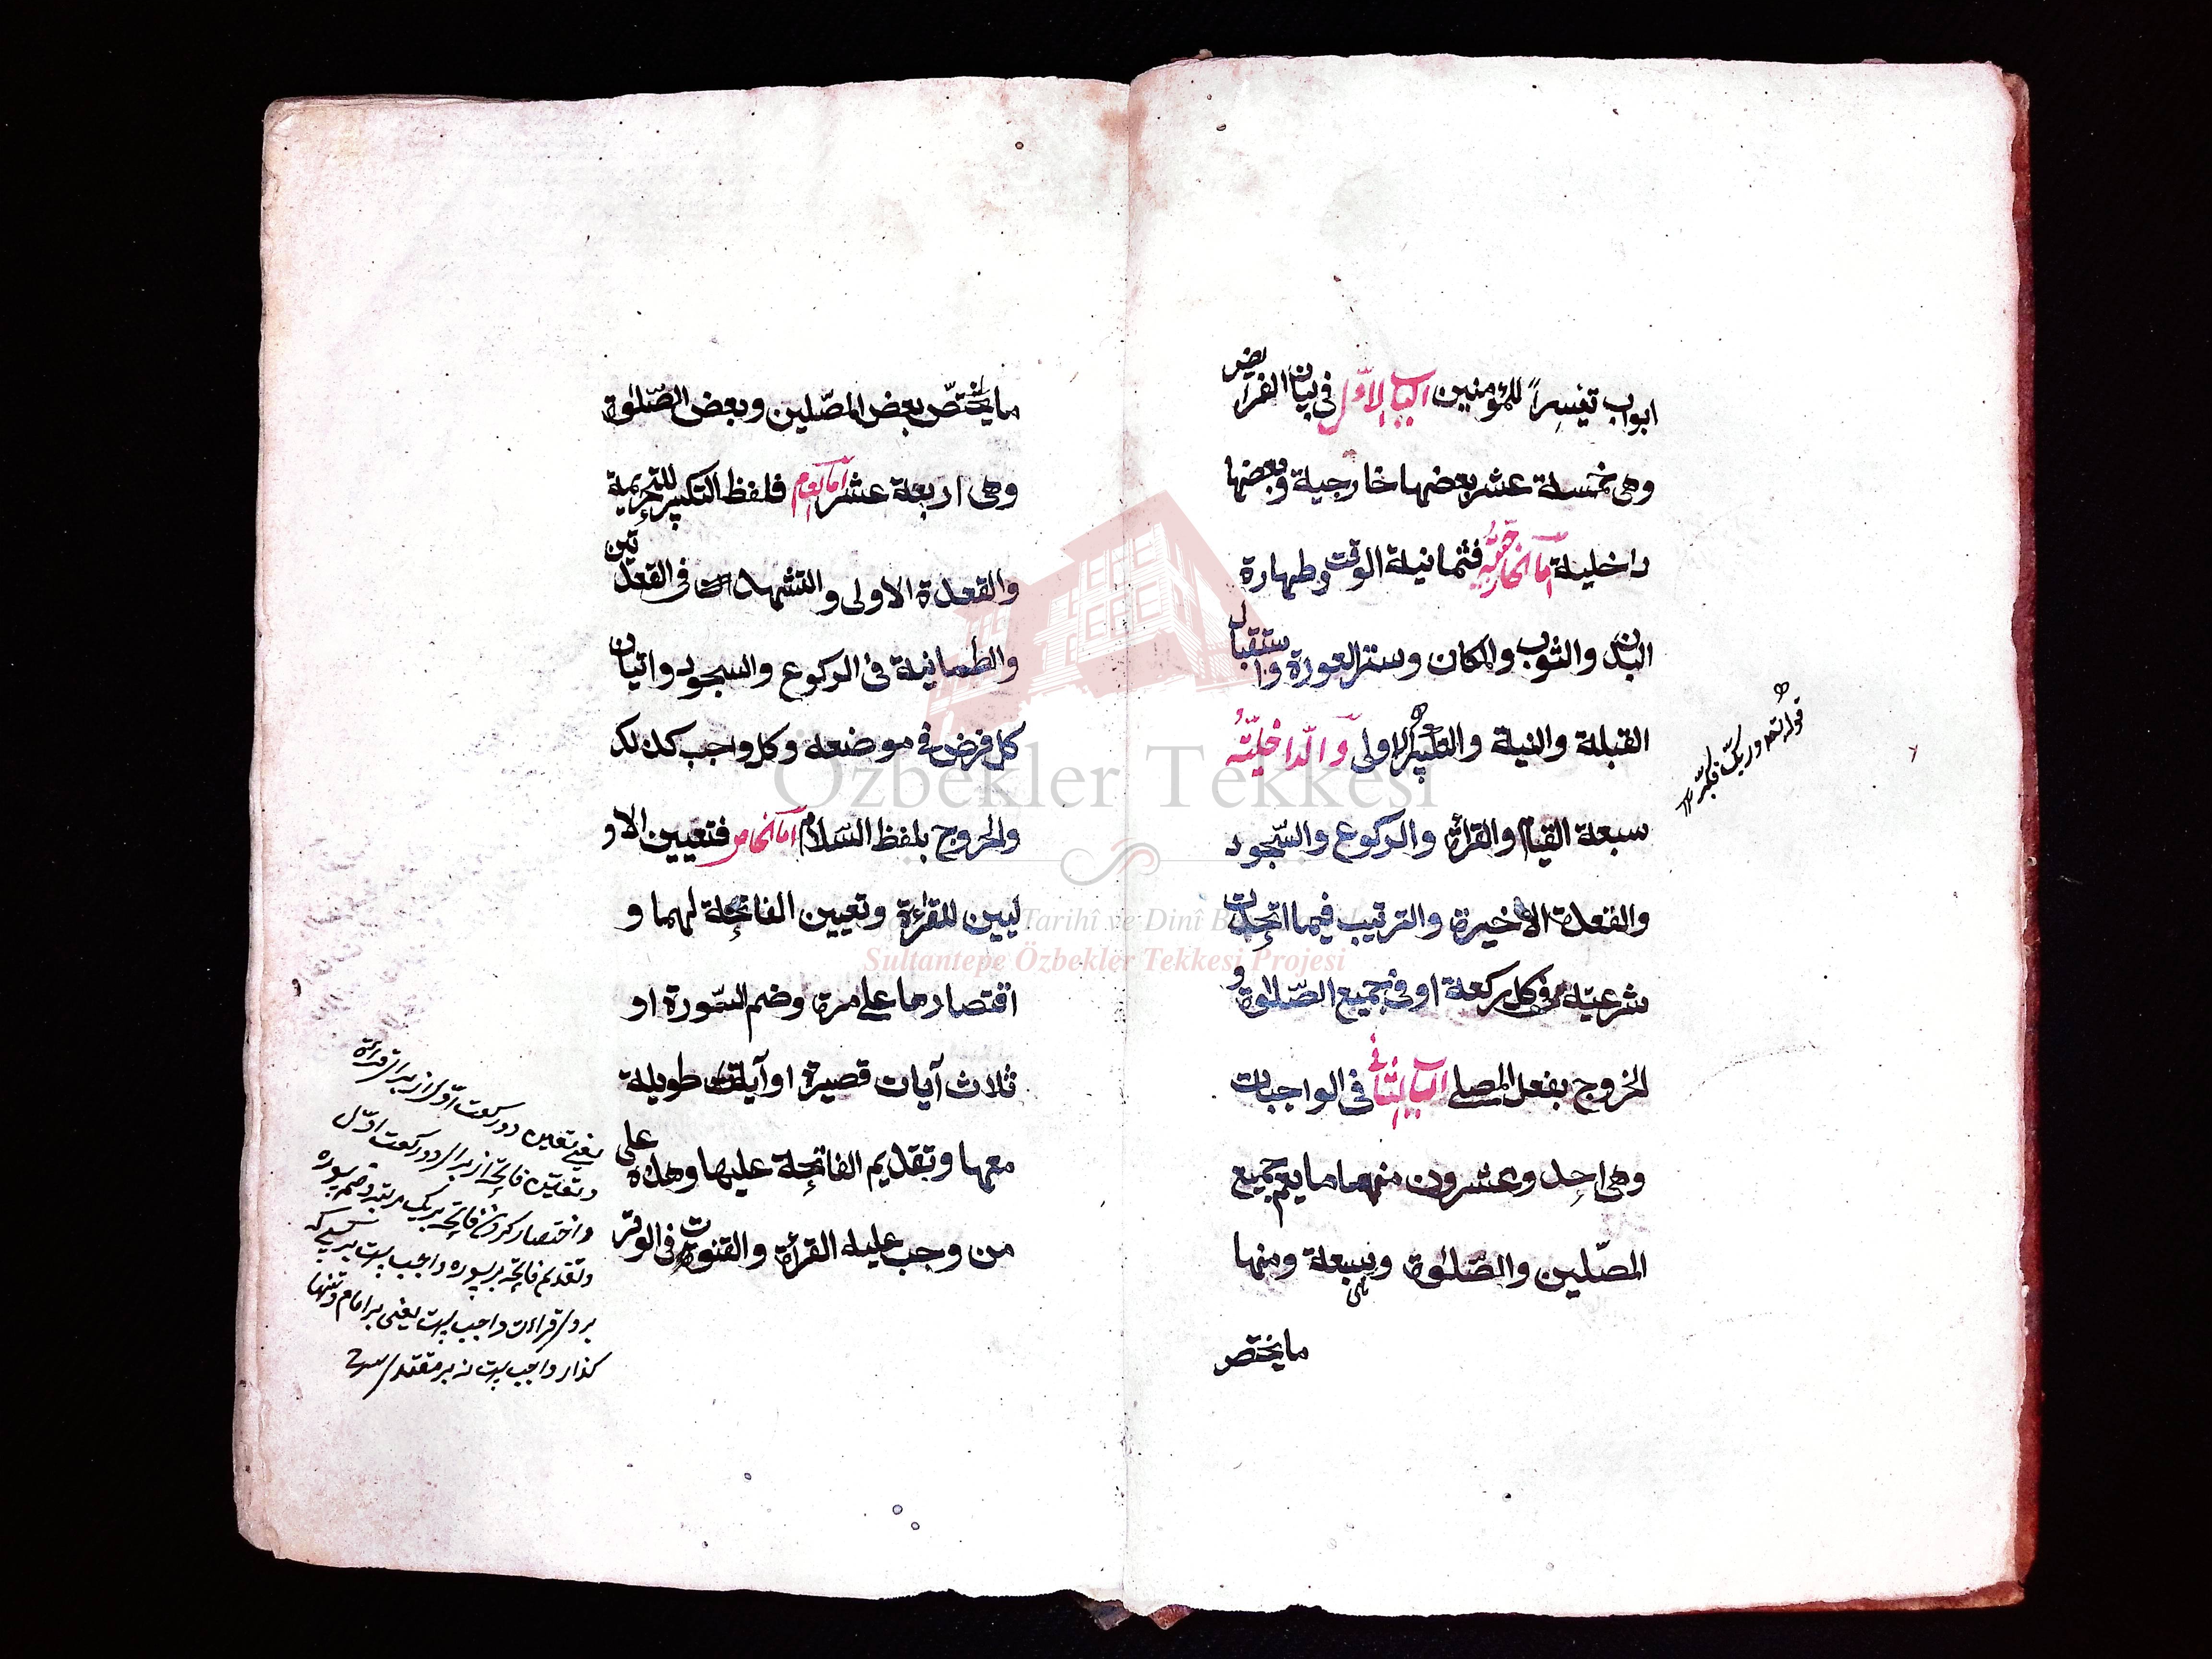 ابواب تيسيراً للمؤمنين الباب الاوّل فى بيان الفرائض
وهى خمسة عشر بعضها خارجية وبعضها
داخلية امّا الخارجيّة فثمانية الوقت وطهارة
البدن والثوب والمكان وستر العورة واستقبال
القبلة والنية والتكبير الاولى وَالدّاخليّة
سبعة القيام والقرأة والركوع والسّجود
والقعدة الاخيرة والترتيب فيما اتحدت
شرعيّة فى كل ركعة او فى جميع الصّلوة و
الخروج بفعل المصلى الباب الثّانى فى الواجبات
وهى احد وعشرون منها ما يعم جميع
المصّلين والصّلوة وهى سبعة ومنها
ما يختص
قوله تعم وربك فكبّر ١٢
ما يختصّ بعض المصّلين وبعض الصّلوة
وهى اربعة عشر امّا العام فلفظ التكبير للتحريمة
والقعدة الاولى والتشهد فى القعدتين
والطمانية فى الركوع والسجود واتيان
كل فرض فى موضعه وكل واجب كذلك
والخروج بلفظ السّلام امّا الخاص فتعيين الاو
ليين للقرأة وتعيين الفاتحة لهما و
اقتصارها على مرة وضم السّورة او
ثلاث آيات قصيرة او آية طويلة
معها وتقديم الفاتحة عليها وهذه على
من وجب عليه القرأة والقنوت فى الوتر
يعنى تعين دو ركعت اوّل از براى قرائة
وتعيّن فاتحه از براى دو ركعت اوّل
واختصار كردن فاتحه بريك مرتبه وضم سوره
وتقديم فاتحه بر سوره واجب است بر كسى كه
برو قراءت واجب است يعنى بر امام وتنها
كذار واجب است نه بر مقتدى
Özbekler Tekkesi
Tarihî ve Dinî
Sultantepe Özbekler Tekkesi Projesi